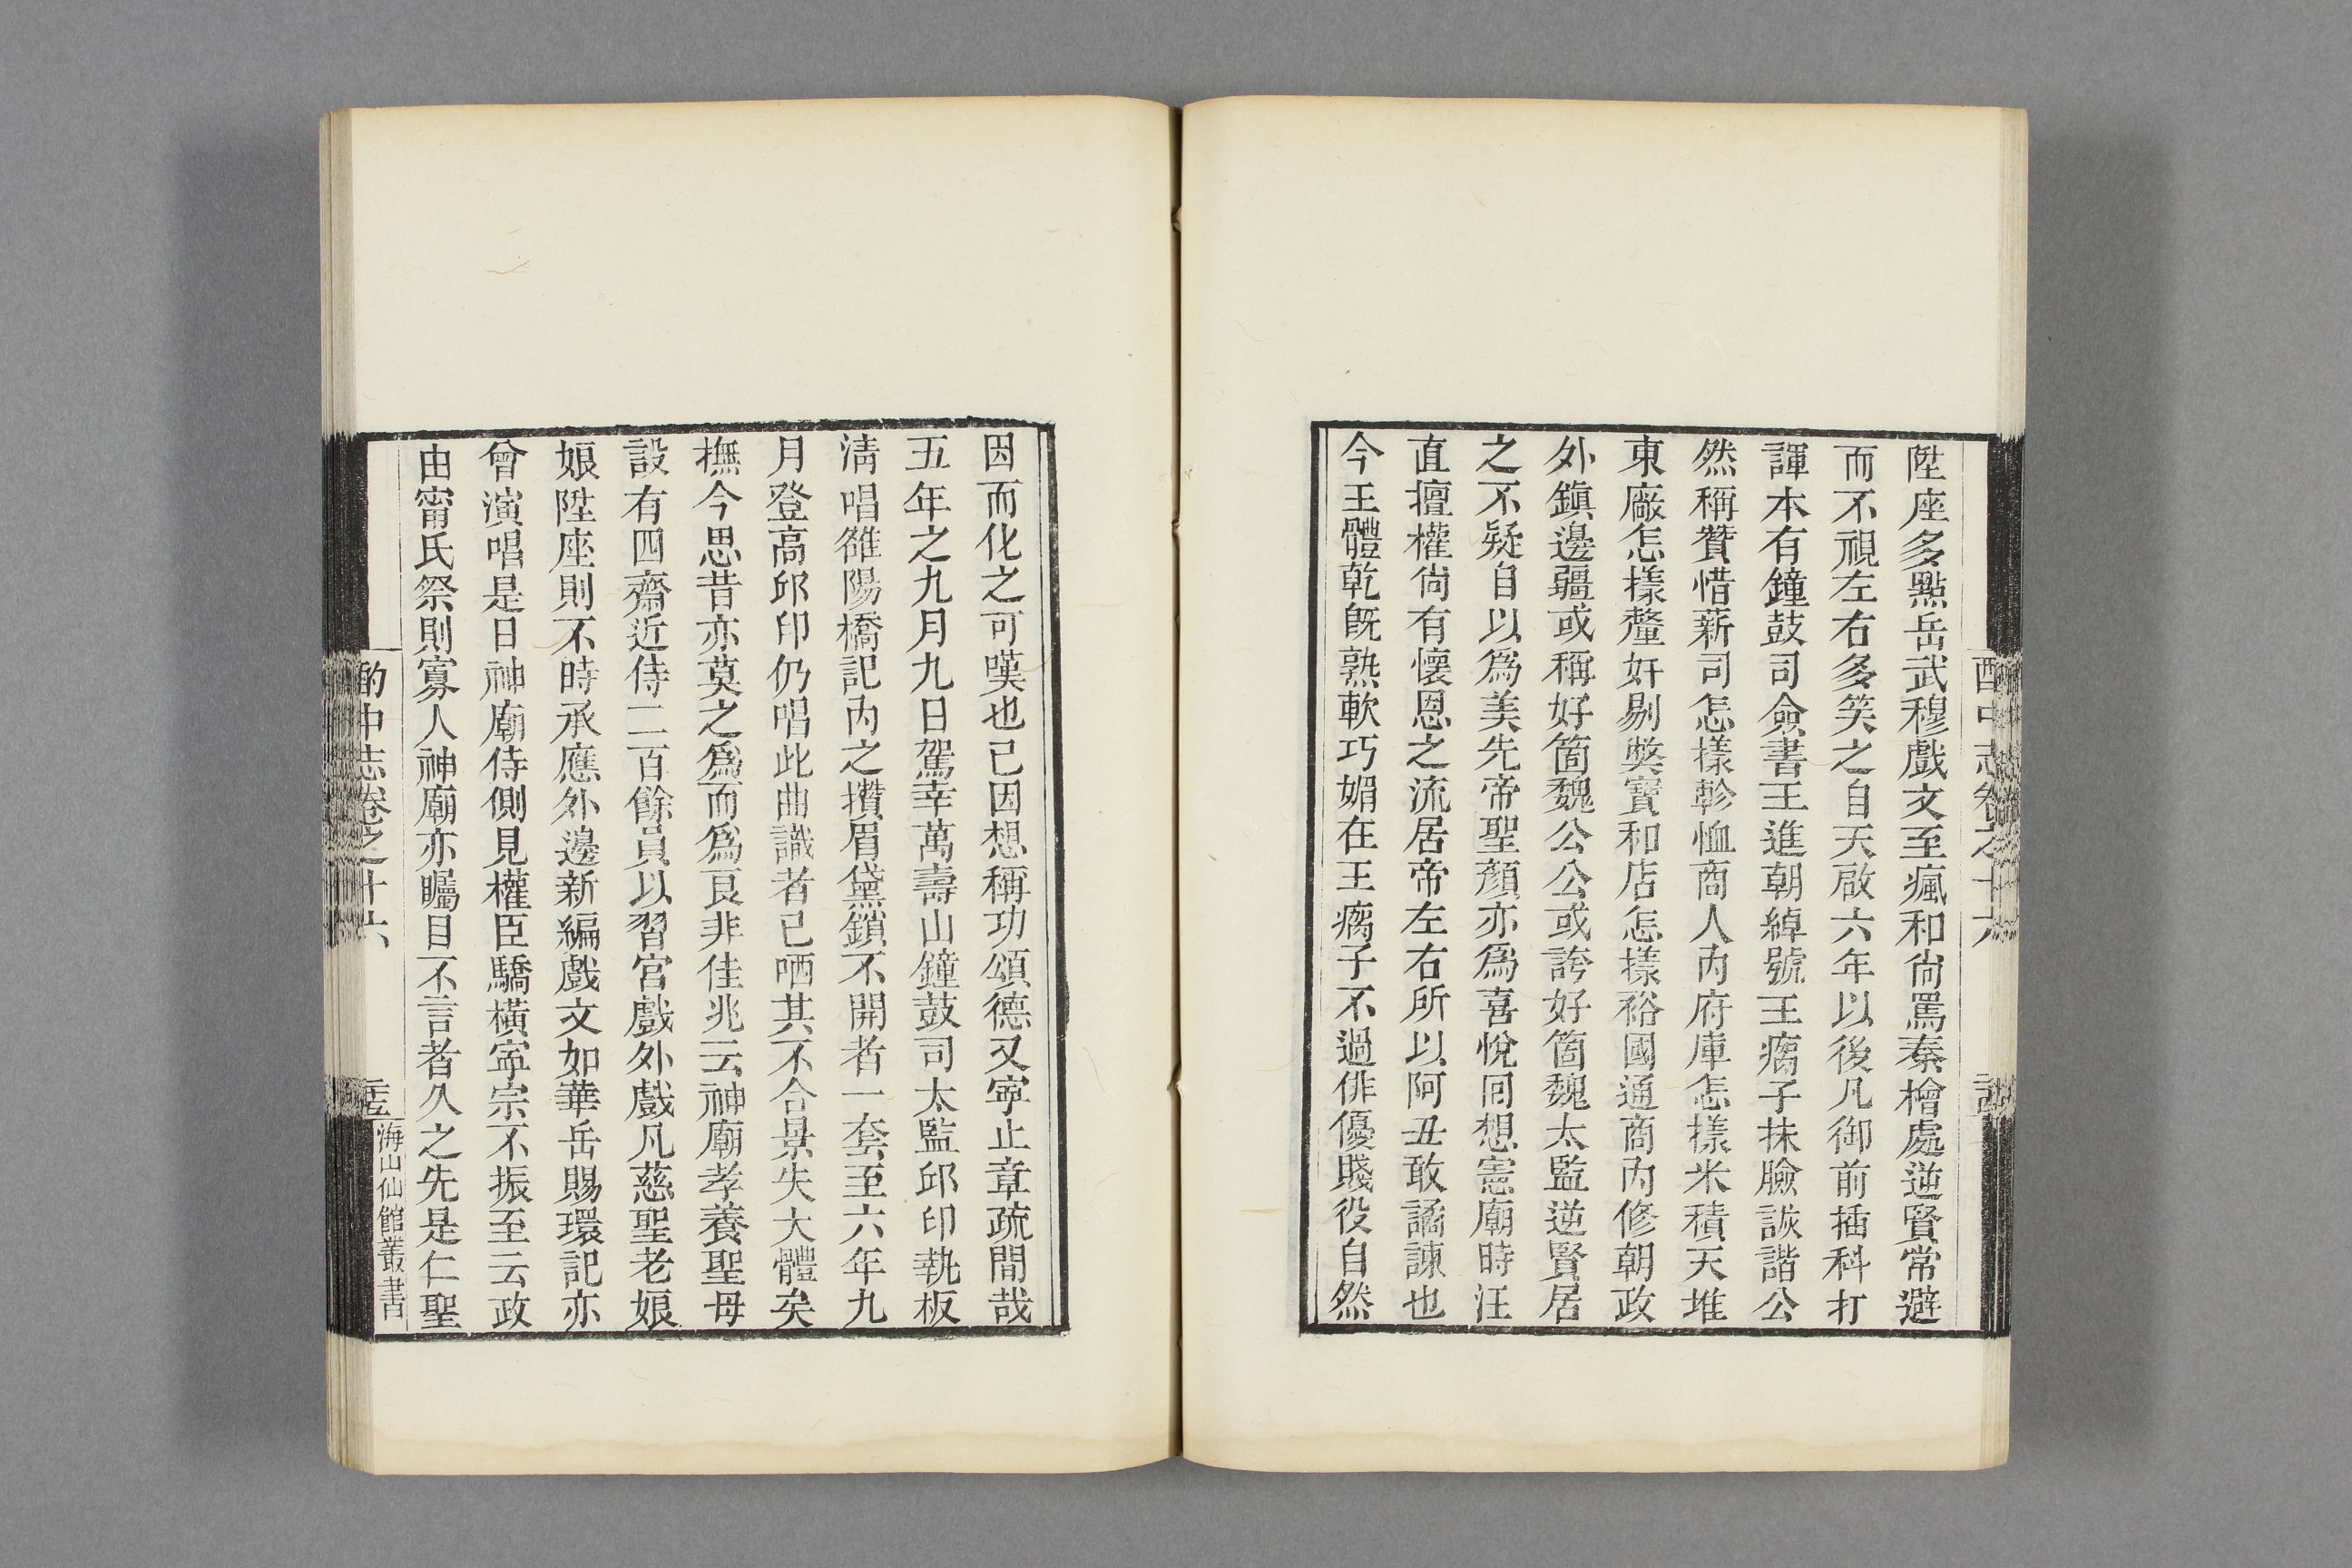 陞座多點岳武穆戲文至瘋和尚罵秦檜處逆賢常避
而不視左右多笑之自天啟六年以後凡御前插科打
諢本有鐘鼓司僉書王進朝綽號王瘸子抹臉詼諧公
然稱贊惜薪司怎樣軫恤商人內府庫怎樣米積天堆
東廠怎樣釐奸剔弊寶和店怎樣裕國通商內修朝政
外鎮邊疆或稱好箇魏公公或誇好箇魏太監逆賢居
之不疑自以為美先帝聖顏亦為喜悅囘想憲廟時汪
直擅權尚有懷恩之流居帝左右所以阿丑敢譎諫也
今王體乾既熟軟巧媚在王瘸子不過俳優賤役自然
因而化之可嘆也已因想稱功頌德又寧止章疏間哉
五年之九月九日駕幸萬壽山鐘鼓司太監邱印執板
清唱雒陽橋記內之攢眉黛鎖不開者一套至六年九
月登高邱印仍唱此曲識者已哂其不合景失大體矣
撫今思昔亦莫之為而為良非佳兆云神廟孝養聖母
設有四齋近侍二百餘員以習宮戲外戲凡慈聖老娘
娘陞座則不時承應外邊新編戲文如華岳賜環記亦
曾演唱是日神廟侍側見權臣驕橫寧宗不振至云政
由甯氏祭則寡人神廟亦矚目不言者久之先是仁聖
酌中志卷之十六
海山仙館叢書